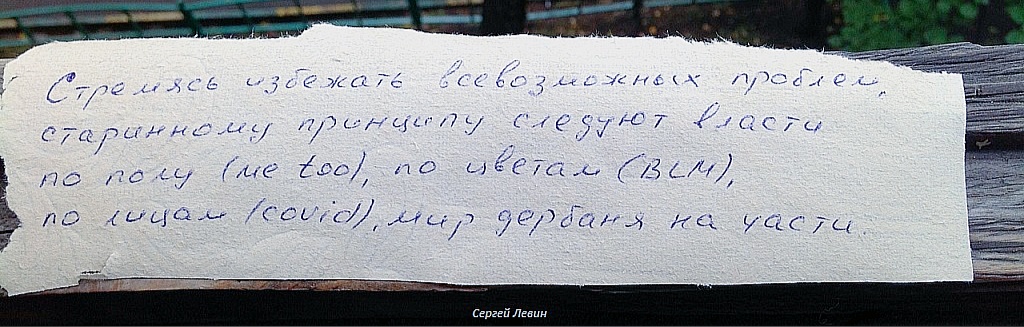 Стремясь избежать всевозможных проблем,
старинному принципу следуют власти
по полу (me too), по цветам (BLM),
по лицам (covid), мир дербаня на части.
Сергей Левин